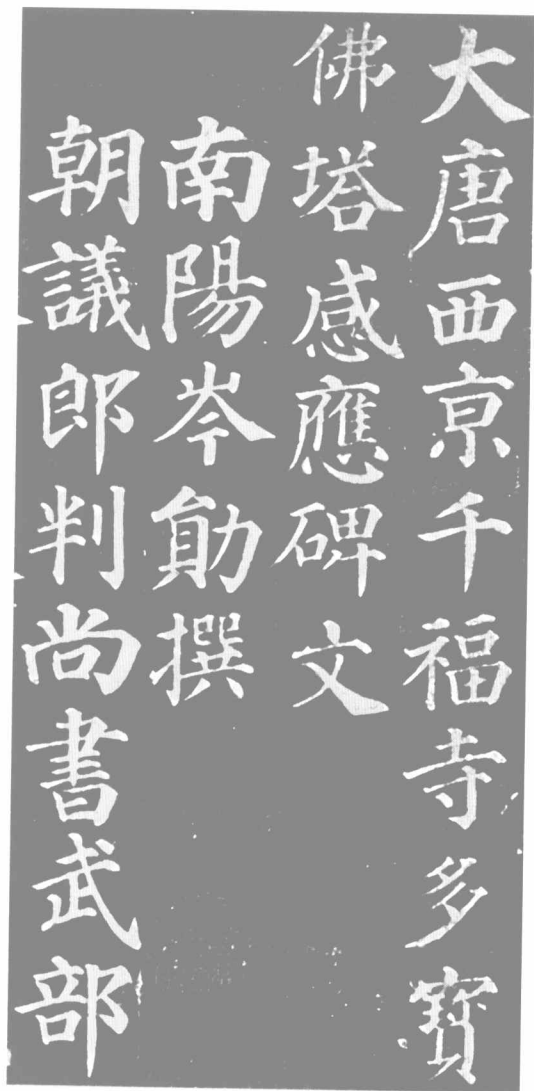 大唐西亰千福寺多寳
佛塔感應碑文
南陽岑勛撰
朝議郎判尚書武部